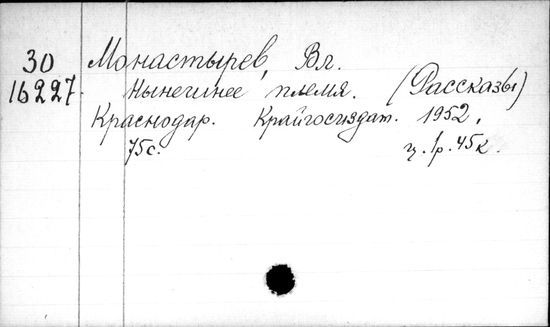 30 Монастырев, Вл.
16227. Нынешнее племя. (Рассказы)
Краснодар. Крайгосиздат. 1952.
75с. ц. 1р. 45к.